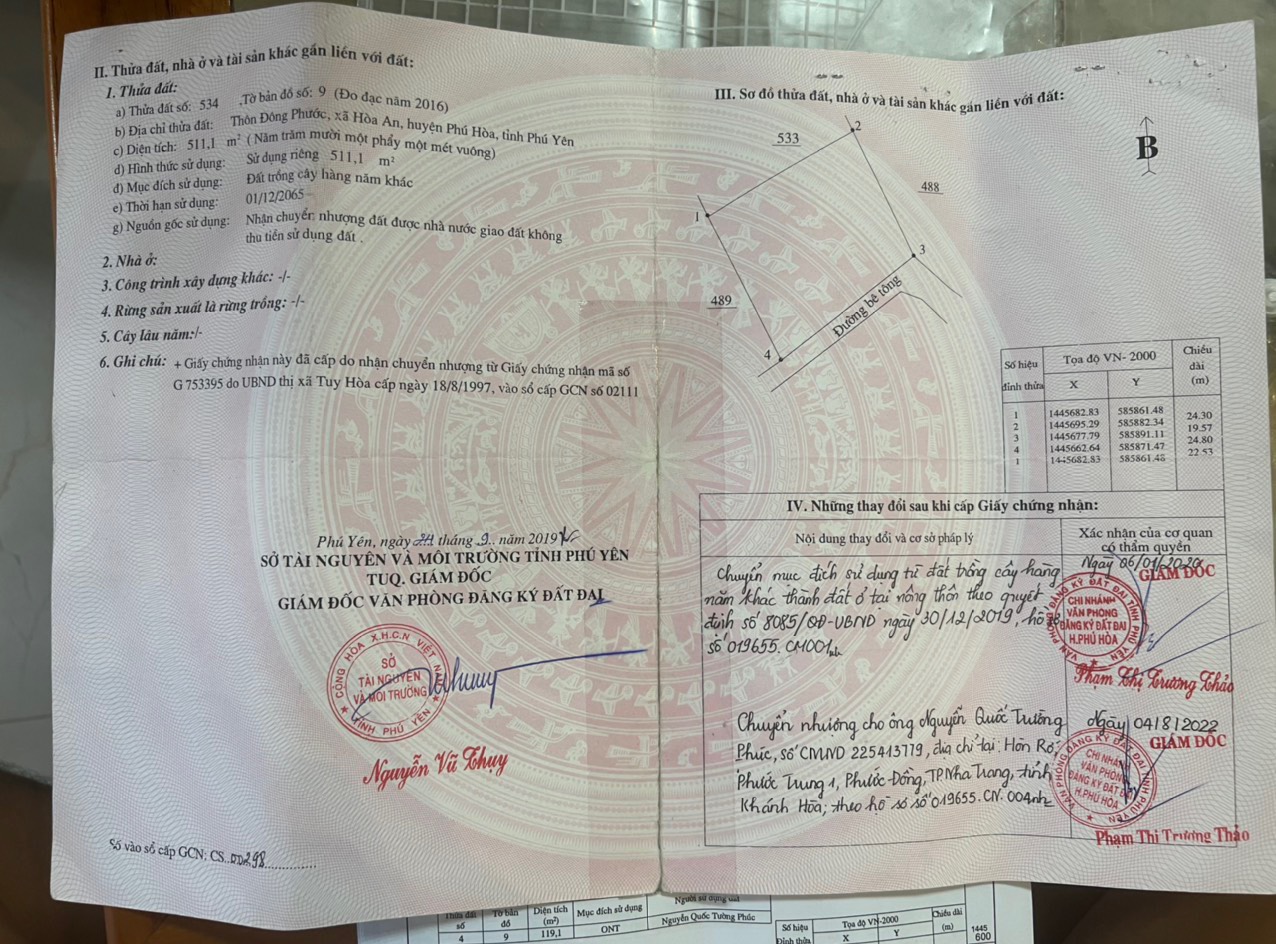 II. Thửa đất, nhà ở và tài sản khác gắn liền với đất:
1. Thửa đất:
a) Thửa đất số: 534 .Tờ bản đồ số: 9 (Đo đạc năm 2016)
b) Địa chỉ thửa đất: Thôn Đông Phước, xã Hòa An, huyện Phú Hòa, tỉnh Phú Yên
c) Diện tích: 511,1 m² ( Năm trăm mười một phẩy một mét vuông)
d) Hình thức sử dụng: Sử dụng riêng 511,1 m²
đ) Mục đích sử dụng: Đất trồng cây hàng năm khác
e) Thời hạn sử dụng: 01/12/2065
g) Nguồn gốc sử dụng: Nhận chuyển nhượng đất được nhà nước giao đất không
thu tiền sử dụng đất .
2. Nhà ở:
3. Công trình xây dựng khác: -/-
4. Rừng sản xuất là rừng trồng: -/-
5. Cây lâu năm:/-
6. Ghi chú: + Giấy chứng nhận này đã cấp do nhận chuyển nhượng từ Giấy chứng nhận mã số
G 753395 do UBND thị xã Tuy Hòa cấp ngày 18/8/1997, vào sổ cấp GCN số 02111
Phú Yên, ngày tháng .9.. năm 2019
SỞ TÀI NGUYÊN VÀ MÔI TRƯỜNG TỈNH PHÚ YÊN
TUQ. GIÁM ĐỐC
GIÁM ĐỐC VĂN PHÒNG ĐĂNG KÝ ĐẤT ĐAI
CỘNG HÒA X.H.C.N VIỆT NAM
SỞ
TÀI NGUYÊN
VÀ MÔI TRƯỜNG
TỈNH PHÚ YÊN
Nguyễn Vũ Thụy
Số vào sổ cấp GCN: CS..00298
III. Sơ đồ thửa đất, nhà ở và tài sản khác gắn liền với đất:
B
533
2
488
1
3
489
Đường bê tông
4
Số hiệu đỉnh thửa Tọa độ VN- 2000 Chiều dài (m)
X Y
1 1445682.83 585861.48
24.30
2 1445695.29 585882.34
19.57
3 1445677.79 585891.11
24.80
4 1445662.64 585871.47
22.53
1 1445682.83 585861.48
IV. Những thay đổi sau khi cấp Giấy chứng nhận:
Nội dung thay đổi và cơ sở pháp lý
Xác nhận của cơ quan
có thẩm quyền
Chuyển mục đích sử dụng từ đất trồng cây hàng
năm khác thành đất ở tại nông thôn theo quyết
định số 8085/QĐ-UBND ngày 30/12/2019, hồ sơ
số 019655.CM001
Ngày 06/01/2020
GIÁM ĐỐC
VĂN PHÒNG ĐĂNG KÝ ĐẤT ĐAI TỈNH PHÚ YÊN
CHI NHÁNH
VĂN PHÒNG
ĐĂNG KÝ ĐẤT ĐAI
H.PHÚ HÒA
Phạm Thị Trương Thảo
Chuyển nhượng cho ông Nguyễn Quốc Trường
Phúc, số CMND 225413779, địa chỉ tại: Hòn Rớ,
Phước Trung 1, Phước Đồng, TP Nha Trang, tỉnh
Khánh Hòa; theo hồ sơ số 019655.CN.004
Ngày 04/8/2022
GIÁM ĐỐC
VĂN PHÒNG ĐĂNG KÝ ĐẤT ĐAI TỈNH PHÚ YÊN
CHI NHÁNH
VĂN PHÒNG
ĐĂNG KÝ ĐẤT ĐAI
H.PHÚ HÒA
Phạm Thị Trương Thảo
Thửa đất số Tờ bản đồ Diện tích (m²) Mục đích sử dụng Người sử dụng đất
4 9 119,1 ONT Nguyễn Quốc Tường Phúc
Số hiệu Đỉnh thửa Tọa độ VN-2000 Chiều dài (m)
X Y
1445
600